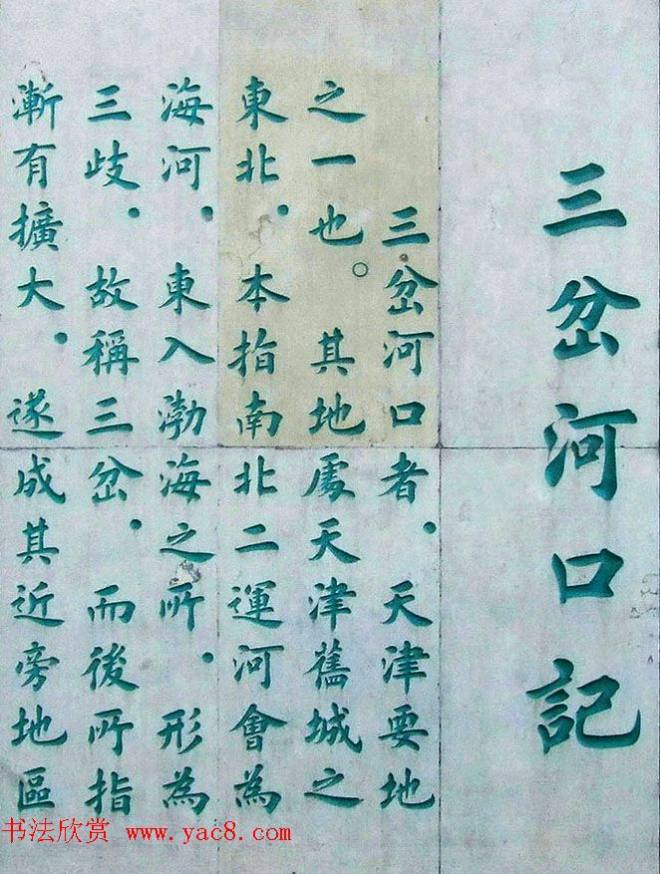 三岔河口記
三岔河口者．天津要地
之一也。其地處天津舊城之
東北．本指南北二運河會為
海河．東入渤海之所．形為
三歧．故稱三岔．而後所指
漸有擴大．遂成其近旁地區
书法欣赏 www.yac8.com